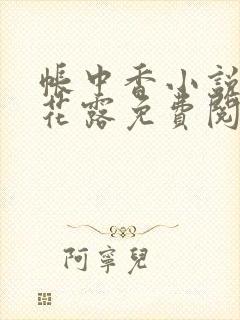 帳中香小說
花露免費閱
阿寧兒